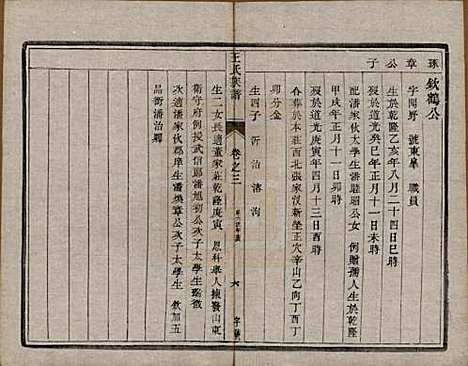 琢章公子
欽鶴公
字閒野 號東皐 職員
生於乾隆乙亥年八月二十四日巳時
歿於道光癸巳年正月十一日未時
配潘家伙太學生潘 昭公女 例贈孺人生於乾隆
甲戌年正月十一日卯時
歿於道光庚寅年四月十三日酉時
合葬於本莊西北張家漢新塋正穴辛山乙向丁酉丁
卯分金
生四子 沂 治 濬 洵
王氏家譜
卷之三
六
生二女長適董家莊乾隆庚寅 恩科舉人揀發山東
衛守府例授武信郎潘旭初公次子太學生 徵
次適潘家伙郡庠生潘煥章公次子太學生 欽加五
品銜潘治驛